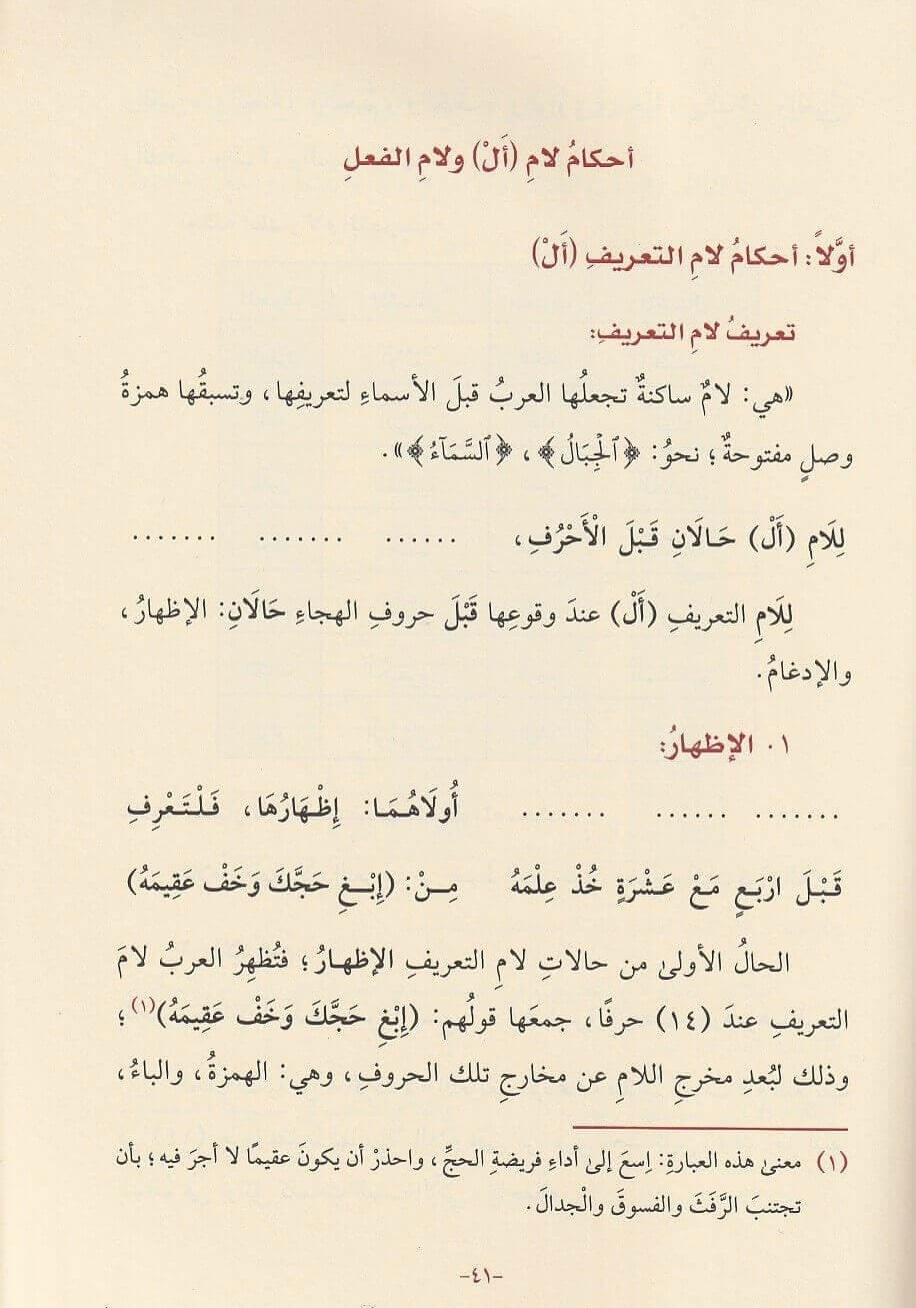 أحكامُ لامِ (أَلْ) ولامِ الفعلِ
أوَّلاً: أحكامُ لامِ التعريفِ (أَلْ)
تعريفُ لامِ التعريفِ:
«هي: لامٌ ساكنةٌ تجعلُها العربُ قبلَ الأسماءِ لتعريفِها، وتسبقُها همزةُ
وصلٍ مفتوحةٌ؛ نحوُ: ﴿ٱلْجِبَالُ﴾، ﴿ٱلسَّمَآءُ﴾».
لِلَامِ (أَلْ) حَالَانِ قَبْلَ الْأَحْرُفِ، ...... ....... .......
لِلَامِ التعريفِ (أَلْ) عندَ وقوعِها قَبْلَ حروفِ الهجاءِ حَالَانِ: الإظهارُ،
والإدغامُ.
٠١ الإظهارُ:
....... ...... ....... أُولَاهُمَا: إِظْهَارُهَا، فَلْتَعْرِفِ
قَبْلَ ارْبَعٍ مَعْ عَشْرَةٍ خُذْ عِلْمَهُ مِنْ: (إِبْغِ حَجَّكَ وَخَفْ عَقِيمَهُ)
الحالُ الأولىٰ من حالاتِ لامِ التعريفِ الإظهارُ؛ فتُظهِرُ العربُ لامَ
التعريفِ عندَ (١٤) حرفًا، جمعَها قولُهم: (إِبْغِ حَجَّكَ وَخَفْ عَقِيمَهُ)(١)؛
وذلك لبُعدِ مخرجِ اللامِ عن مخارجِ تلك الحروفِ، وهي: الهمزةُ، والباءُ،
(١) معنىٰ هذه العبارةِ: اِسعَ إلىٰ أداءِ فريضةِ الحجِّ، واحذرْ أن يكونَ عقيمًا لا أجرَ فيه؛ بأن
تجتنبَ الرَّفَثَ والفسوقَ والْجدالَ.
-٤١-